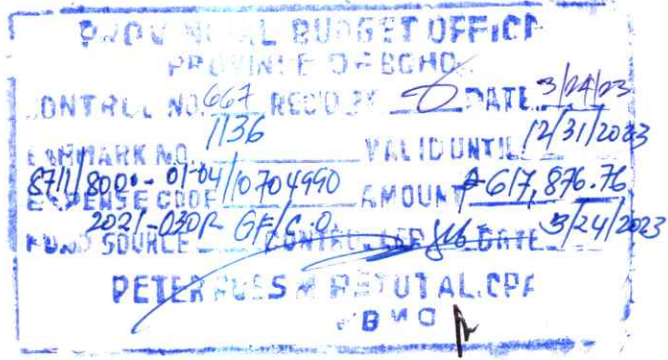 PROVINCIAL BUDGET OFFICE
PROVINCE OF BOHOL
CONTROL NO. 667 REC'D BY DATE 3/24/23
EARMARK NO. 1136 VALID UNTIL 12/31/2023
8711/8000-01-04/10704990
EXPENSE CODE AMOUNT ₱617,876.76
2021-030R GF/C.O.
FUND SOURCE CONTROLLER DATE 3/24/2023
PETER ROSS
CPA
PBMO